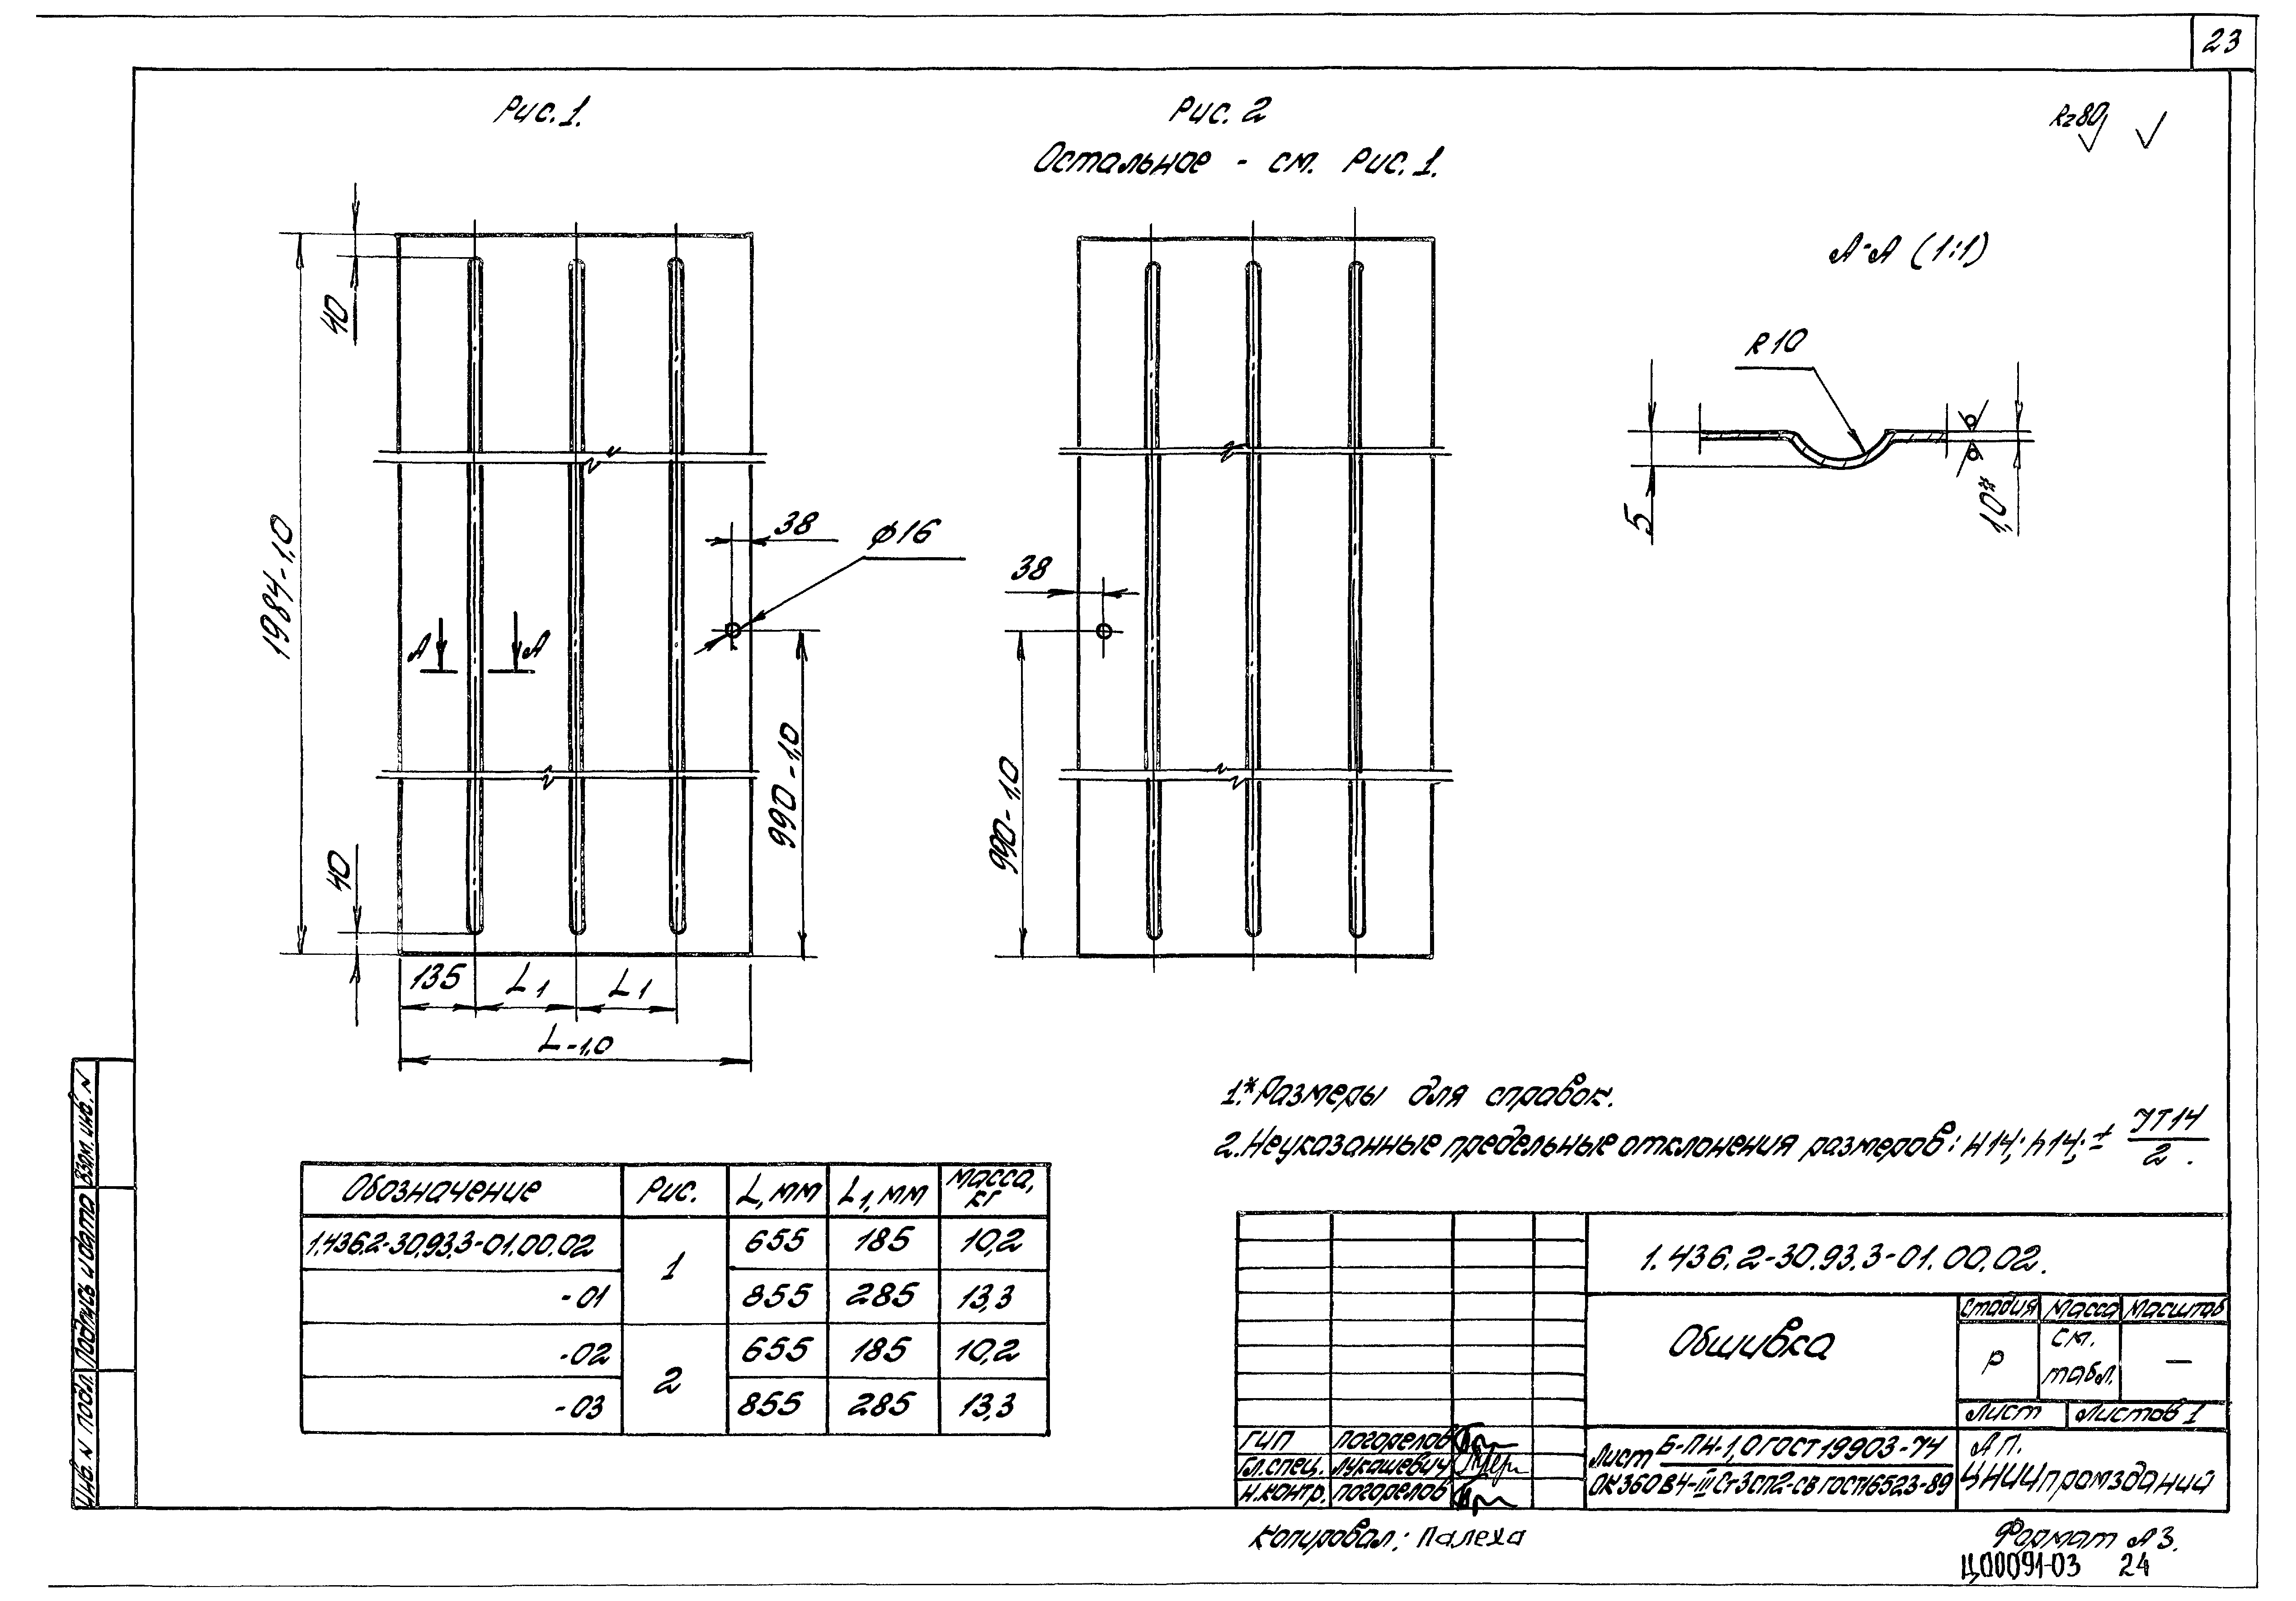 23
Рис. 1.
Рис. 2
Остальное - см. Рис. 1.
Rz80
А-А (1:1)
R10
5
1,0*
40
1984-1,0
38
ϕ16
А А
990-1,0
40
135 L1 L1
L-1,0
38
990-1,0
1.* Размеры для справок.
2. Неуказанные предельные отклонения размеров: H14; h14; ± JT14/2.
Обозначение Рис. L, мм L1, мм Масса, кг
1.436.2-30.93.3-01.00.02 1 655 185 10,2
-01 855 285 13,3
-02 2 655 185 10,2
-03 855 285 13,3
1.436.2-30.93.3-01.00.02.
Обшивка
Стадия Масса Масштаб
Р см. табл. —
Лист Листов 1
ГИП Погорелов
Гл. спец. Лукашевич
Н. контр. Погорелов
Лист Б-ПН-1,0 ГОСТ 19903-74
ОК360В4-III Ст3сп2-св ГОСТ 16523-89
АП.
ЦНИИпромзданий
Взам. инв. N
Подпись и дата
Инв. N подл.
Копировал: Палеха
Формат А3.
Ц00091-03 24